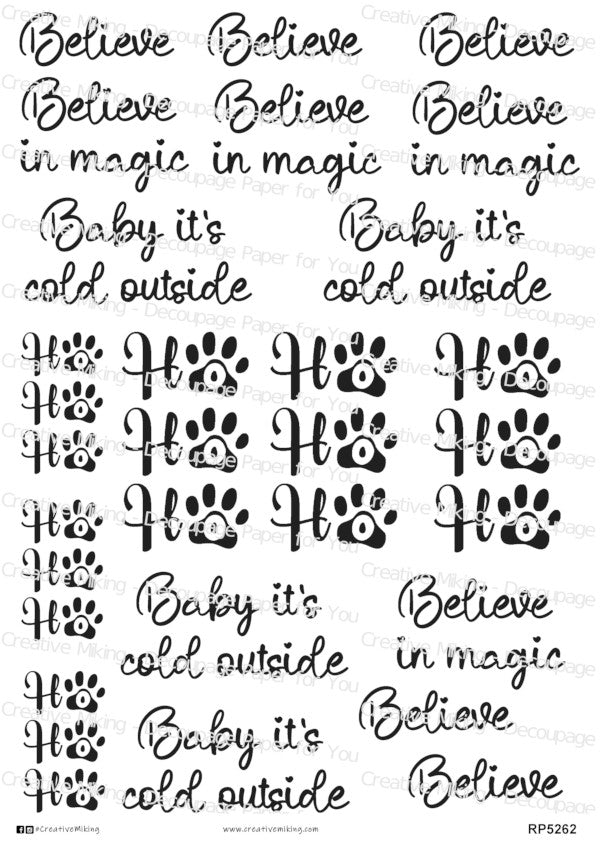 Believe Believe Believe
Believe Believe Believe
in magic in magic in magic
Baby it's Baby it's
cold outside cold outside
Ho Ho Ho Ho
Ho
Ho Ho Ho Ho
Ho Ho Ho Ho
Ho
Ho
Baby it's Believe
cold outside in magic
Ho Believe
Ho Baby it's
Believe
Ho cold outside
#CreativeMiking www.creativemiking.com RP5262
Creative Miking - Decoupage Paper for You